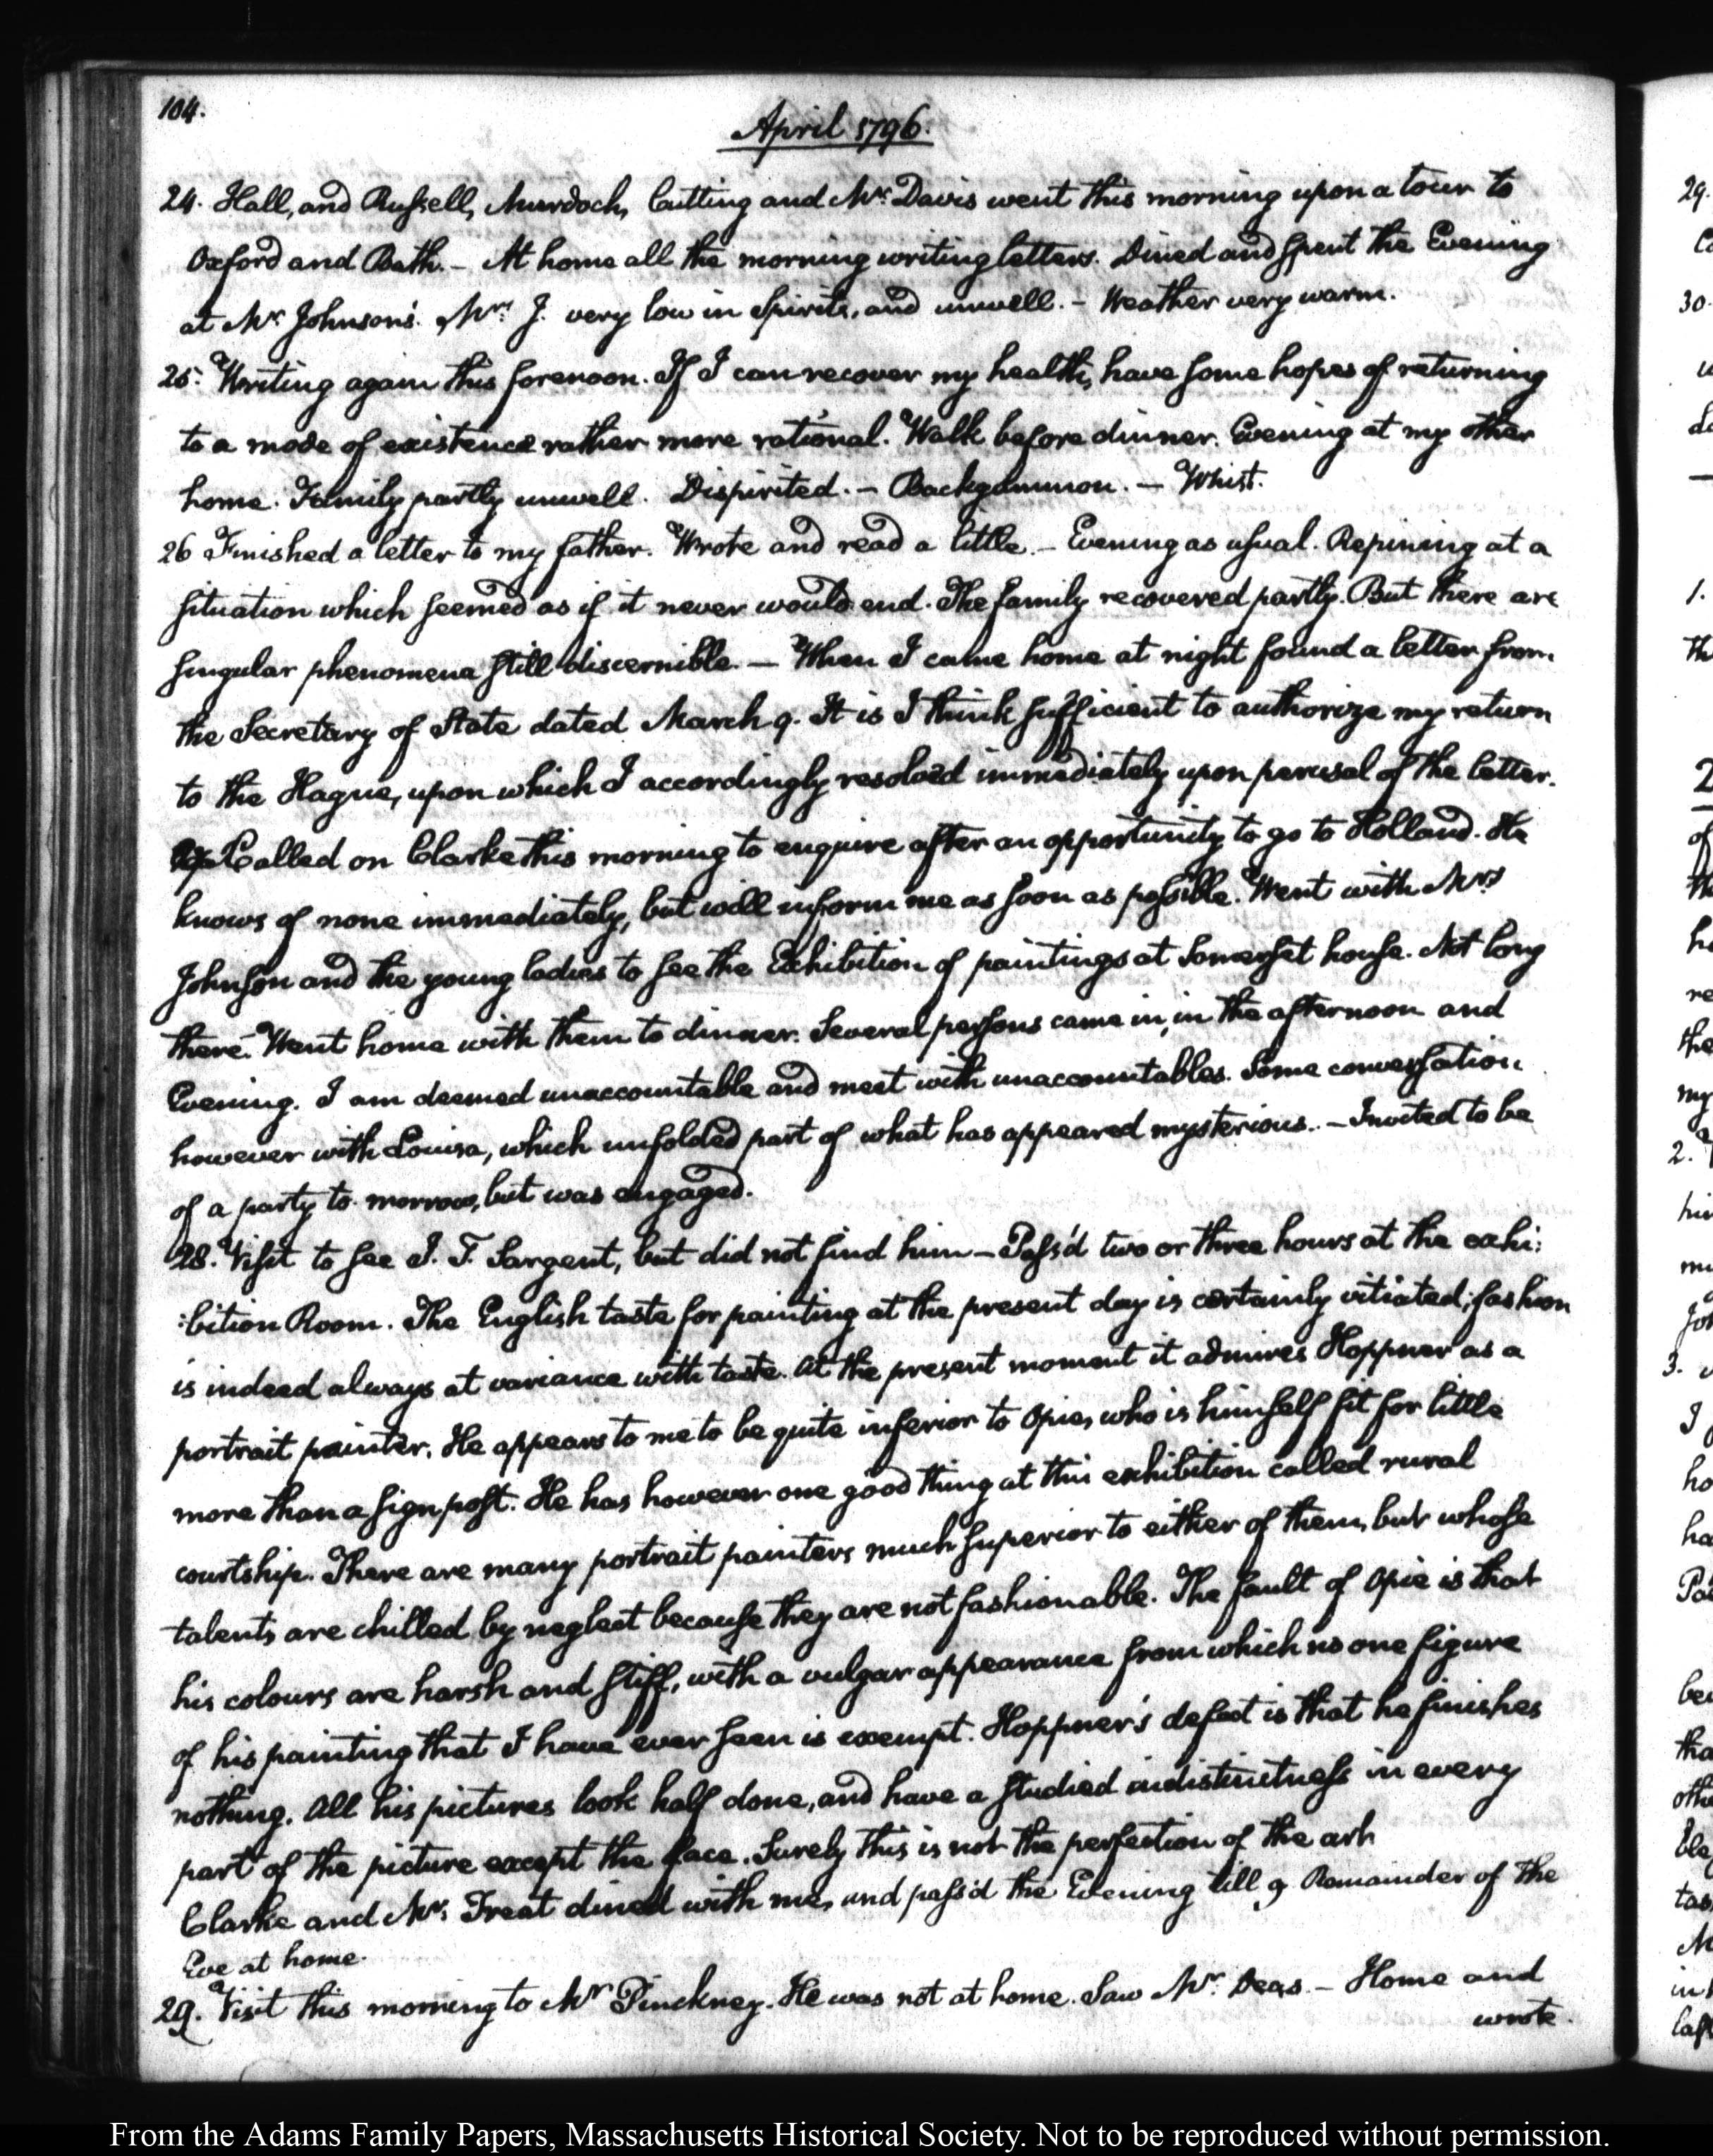 104.
April 1796.
24. Hall, and Russell, Murdoch, Cutting and Mr. Davis went this morning upon a tour to
Oxford and Bath. – At home all the morning writing letters. Dined and spent the Evening
at Mr. Johnson's. Mrs. J. very low in spirits, and unwell. – Weather very warm.
25. Writing again this forenoon. If I can recover my health, have some hopes of returning
to a mode of existence rather more rational. Walk before dinner. Evening at my other
home. Family partly unwell. Dispirited. – Backgammon. – Whist.
26 Finished a letter to my father. Wrote and read a little. – Evening as usual. Repining at a
situation which seemed as if it never would end. The family recovered partly. But there are
singular phenomena still discernible. – When I came home at night found a letter from
the Secretary of State dated March 9. It is I think sufficient to authorize my return
to the Hague, upon which I accordingly resolved immediately upon perusal of the letter.
27. Called on Clarke this morning to enquire after an opportunity to go to Holland. He
knows of none immediately, but will inform me as soon as possible. Went with Mrs
Johnson and the young ladies to see the Exhibition of paintings at Somerset house. Not long
there. Went home with them to dinner. Several persons came in, in the afternoon and
Evening. I am deemed unaccountable and meet with unaccountables. Some conversation
however with Louisa, which unfolded part of what has appeared mysterious. – Invited to be
of a party to-morrow, but was engaged.
28. Visit to see I. T. Sargent, but did not find him – Pass'd two or three hours at the exhi:
:bition Room. The English taste for painting at the present day is certainly vitiated; fashion
is indeed always at variance with taste. At the present moment it admires Hoppner as a
portrait painter. He appears to me to be quite inferior to Opie, who is himself fit for little
more than a sign post. He has however one good thing at this exhibition called rural
courtship. There are many portrait painters much superior to either of them, but whose
talents are chilled by neglect because they are not fashionable. The fault of Opie is that
his colours are harsh and stiff, with a vulgar appearance from which no one figure
of his painting that I have ever seen is exempt. Hoppner's defect is that he finishes
nothing. All his pictures look half done, and have a studied indistinctness in every
part of the picture except the face. Surely this is not the perfection of the art.
Clarke and Mr. Treat dined with me, and pass'd the Evening till 9 Remainder of the
Eve at home.
29. Visit this morning to Mr Pinckney. He was not at home. Saw Mr. Deas. – Home and
wrote.
From the Adams Family Papers, Massachusetts Historical Society. Not to be reproduced without permission.